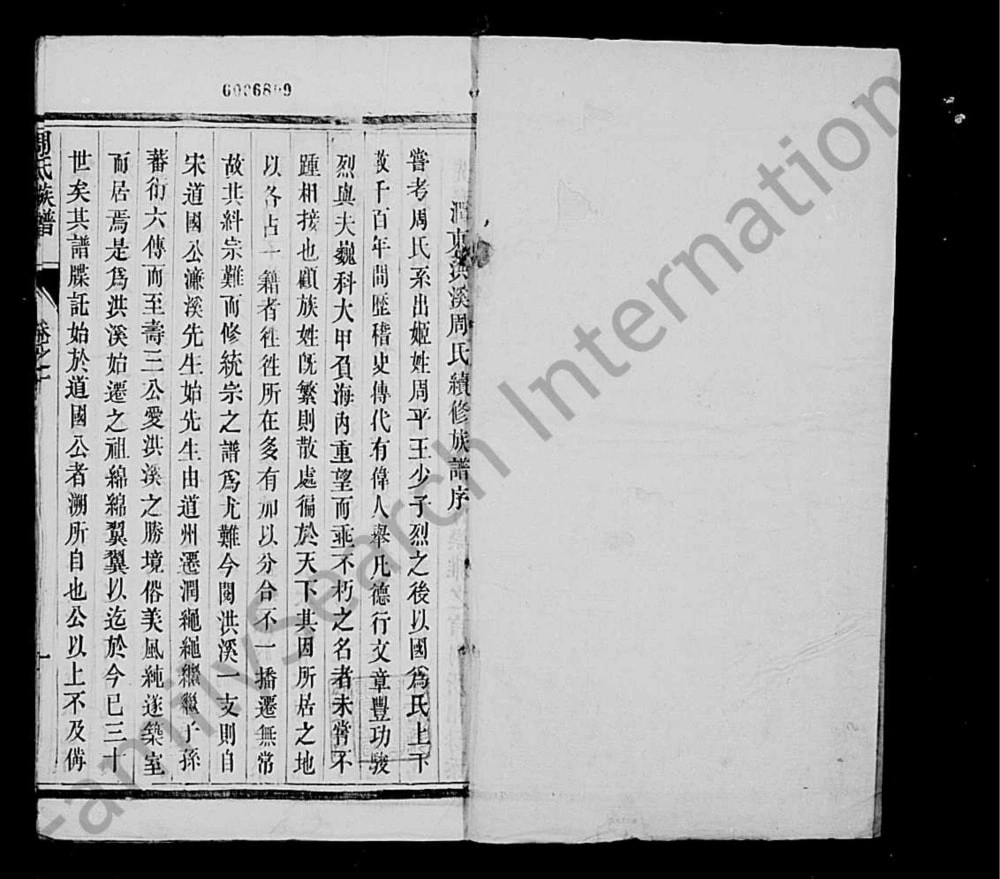 6006809
潤東洪溪周氏續修族譜序
嘗考周氏系出姬姓周平王少子烈之後以國爲氏上下
數千百年間歷稽史傳代有偉人舉凡德行文章豐功駿
烈與夫巍科大甲負海內重望而垂不朽之名者未嘗不
踵相接也顧族姓旣繁則散處徧於天下其因所居之地
以各占一籍者徃徃所在多有加以分合不一播遷無常
故其糾宗難而修統宗之譜爲尤難今閱洪溪一支則自
宋道國公濂溪先生始先生由道州遷潤繩繩繼繼子孫
蕃衍六傳而至壽三公愛洪溪之勝境俗美風純遂築室
而居焉是爲洪溪始遷之祖綿綿翼翼以迄於今已三十
世矣其譜牒託始於道國公者溯所自也公以上不及備
周氏族譜
卷之一
一
FamilySearch International